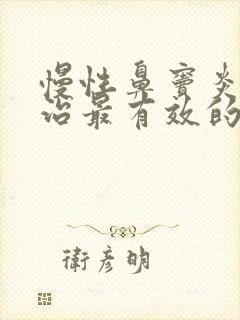 慢性鼻窦炎
治最有效的
衛彦明